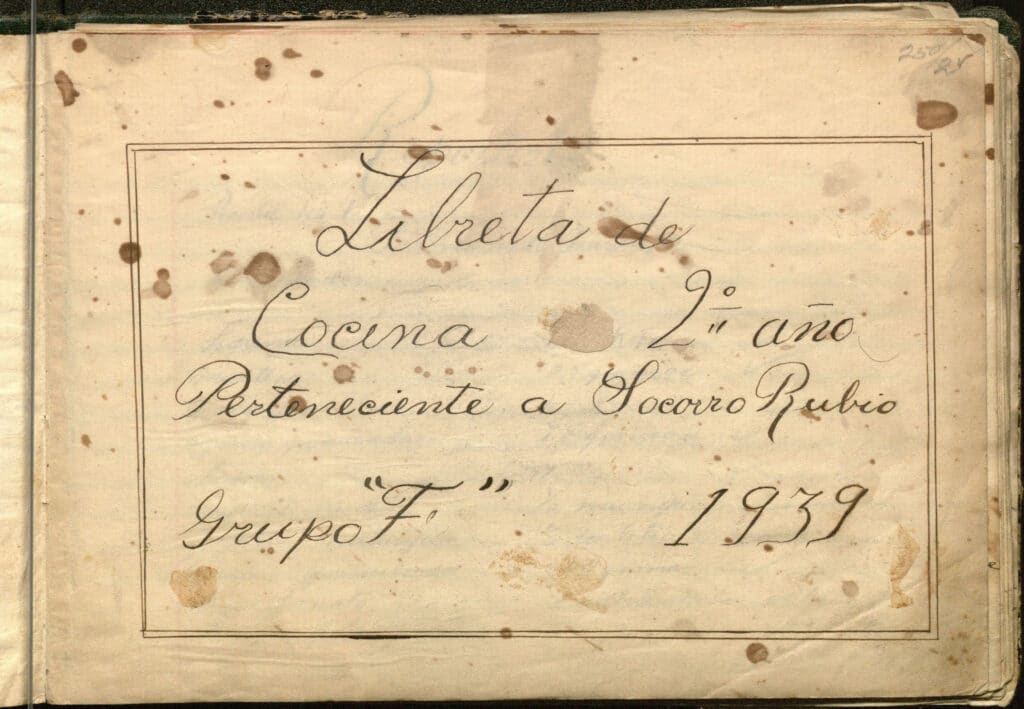 250/25
Libreta de
Cocina 2º año
Perteneciente a Socorro Rubio
Grupo "F" 1939